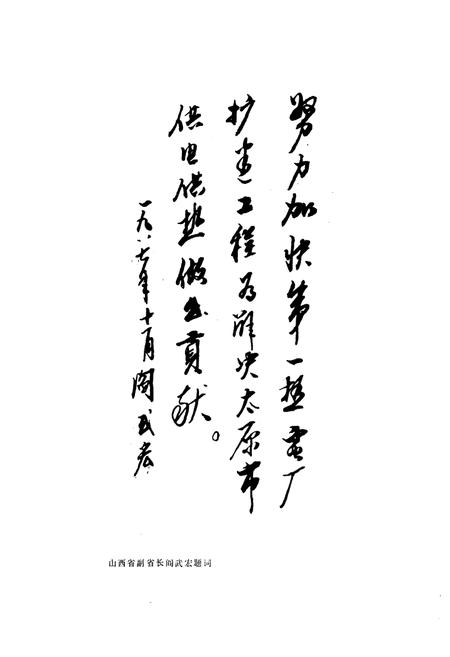 努力加快第一热电厂
扩建工程为解决太原市
供电供热做出贡献。
一九八七年十月阎武宏
山西省副省长阎武宏题词